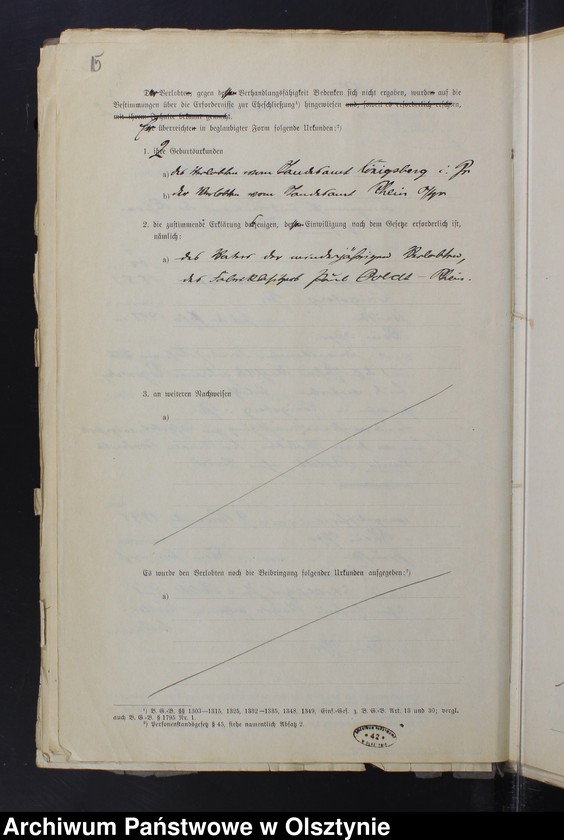 15
Der Verlobten, gegen dessen Verhandlungsfähigkeit Bedenken sich nicht ergaben, wurden auf die
Bestimmungen über die Erfordernisse zur Eheschließung¹) hingewiesen und, soweit es erforderlich erschien,
mit ihrem Inhalte bekannt gemacht.
Er überreichte in beglaubigter Form folgende Urkunden:²)
1. 2 Geburtsurkunden
a) des Verlobten vom Standesamt Königsberg i. Pr
b) der Verlobten vom Standesamt Rhein O/pr
2. die zustimmende Erklärung desjenigen, dessen Einwilligung nach dem Gesetze erforderlich ist,
nämlich:
a) des Vaters der minderjährigen Verlobten,
des Fabrikbesitzers Paul – Rhein.
3. an weiteren Nachweisen
a)
Es wurde den Verlobten noch die Beibringung folgender Urkunden aufgegeben:²)
a)
¹) B. G.-B. §§ 1303—1315, 1325, 1332—1335, 1348, 1349, Einf.-Ges. z. B. G.-B. Art. 13 und 30; vergl.
auch B. G.-B. § 1795 Nr. 1.
²) Personenstandsgesetz § 45, siehe namentlich Absatz 2.
* 42 *
Archiwum Państwowe w Olsztynie